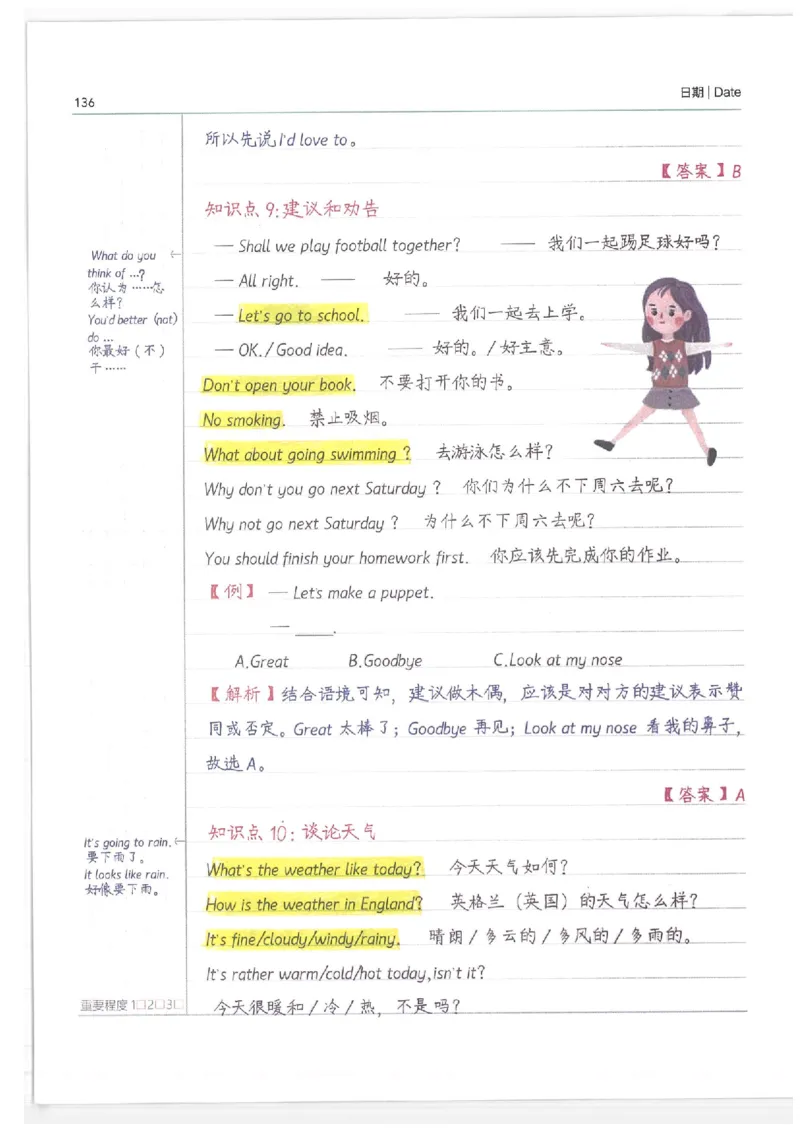 136
日期 | Date
所以先说I'd love to。
【答案】B
知识点 9:建议和劝告
— Shall we play football together? —— 我们一起踢足球好吗?
— All right. —— 好的。
— Let's go to school. —— 我们一起去上学。
— OK./Good idea. —— 好的。/好主意。
Don't open your book. 不要打开你的书。
No smoking. 禁止吸烟。
What about going swimming ? 去游泳怎么样?
Why don't you go next Saturday ? 你们为什么不下周六去呢?
Why not go next Saturday ? 为什么不下周六去呢?
You should finish your homework first. 你应该先完成你的作业。
【例】 — Let's make a puppet.
— ____.
A.Great B.Goodbye C.Look at my nose
【解析】结合语境可知, 建议做木偶, 应该是对对方的建议表示赞
同或否定。Great 太棒了; Goodbye 再见; Look at my nose 看我的鼻子,
故选 A。
【答案】A
知识点 10: 谈论天气
What's the weather like today? 今天天气如何?
How is the weather in England? 英格兰(英国)的天气怎么样?
It's fine/cloudy/windy/rainy. 晴朗/多云的/多风的/多雨的。
It's rather warm/cold/hot today,isn't it?
今天很暖和/冷/热, 不是吗?
What do you
think of ...?
你认为……怎
么样?
You'd better (not)
do ...
你最好(不)
干……
It's going to rain.
要下雨了。
It looks like rain.
好像要下雨。
重要程度 1□2□3□